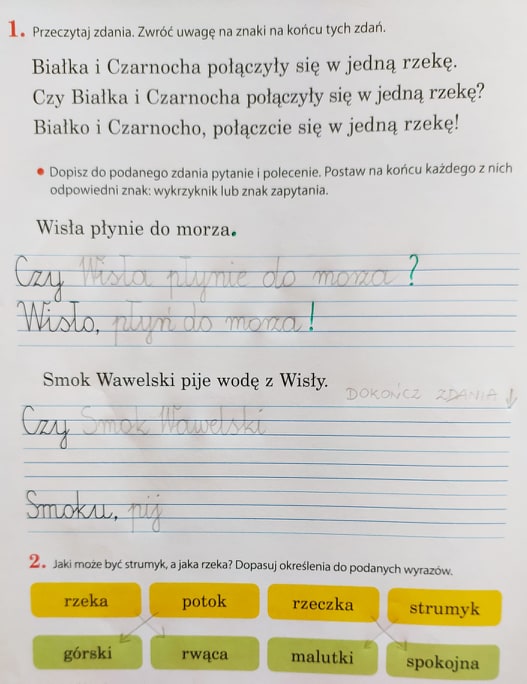 1. Przeczytaj zdania. Zwróć uwagę na znaki na końcu tych zdań.
Białka i Czarnocha połączyły się w jedną rzekę.
Czy Białka i Czarnocha połączyły się w jedną rzekę?
Białko i Czarnocho, połączcie się w jedną rzekę!
• Dopisz do podanego zdania pytanie i polecenie. Postaw na końcu każdego z nich
odpowiedni znak: wykrzyknik lub znak zapytania.
Wisła płynie do morza.
Czy Wisła płynie do morza?
Wisło, płyń do morza!
Smok Wawelski pije wodę z Wisły.
DOKOŃCZ ZDANIA ↓
Czy Smok Wawelski
Smoku, pij
2. Jaki może być strumyk, a jaka rzeka? Dopasuj określenia do podanych wyrazów.
rzeka potok rzeczka strumyk
górski rwąca malutki spokojna